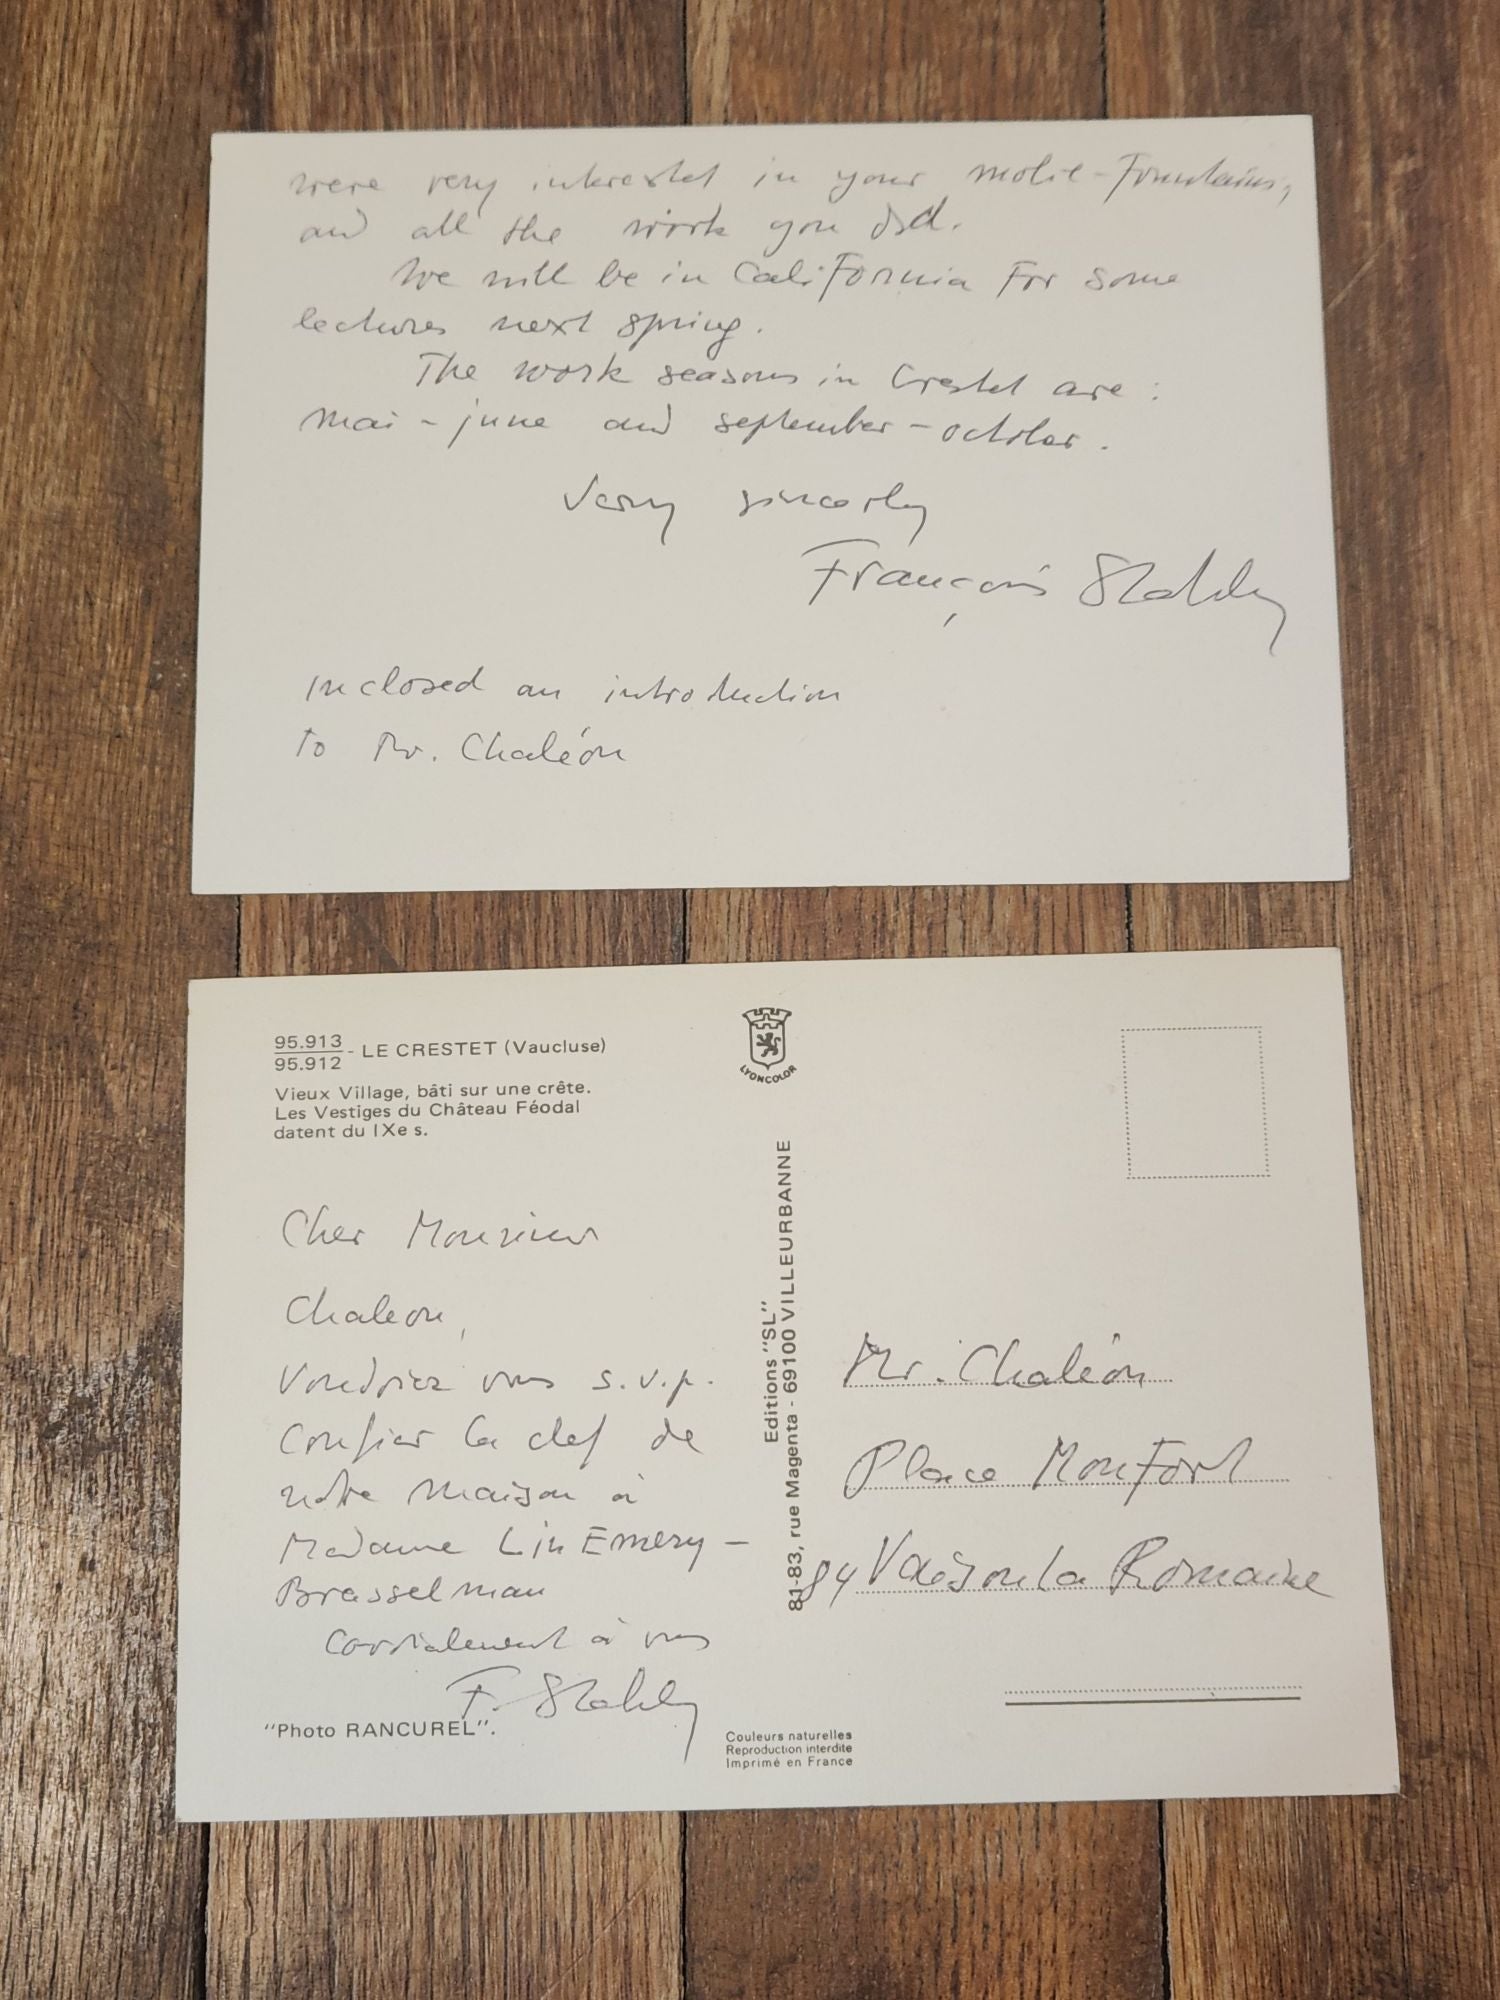 were very interestet in your mobil-Fountains,
and all the work you did.
We will be in California For some
lectures next spring.
The work seasons in Crestet are :
mai - june and september - october.
Very sincerly
François Stahly
Inclosed an introduction
to Mr. Chaléon
95.913
95.912 - LE CRESTET (Vaucluse)
Vieux Village, bâti sur une crête.
Les Vestiges du Château Féodal
datent du IXe s.
LYONCOLOR
Cher Monsieur
Chaleon,
Voudriez vous s.v.p.
confier la clef de
notre maison à
Madame Lin Emery -
Brasselman
Cordialement à vous
F. Stahly
"Photo RANCUREL".
Editions "SL"
81-83, rue Magenta - 69100 VILLEURBANNE
Couleurs naturelles
Reproduction interdite
Imprimé en France
Mr. Chaléon
Place MonFort
84 Vaison la Romaine